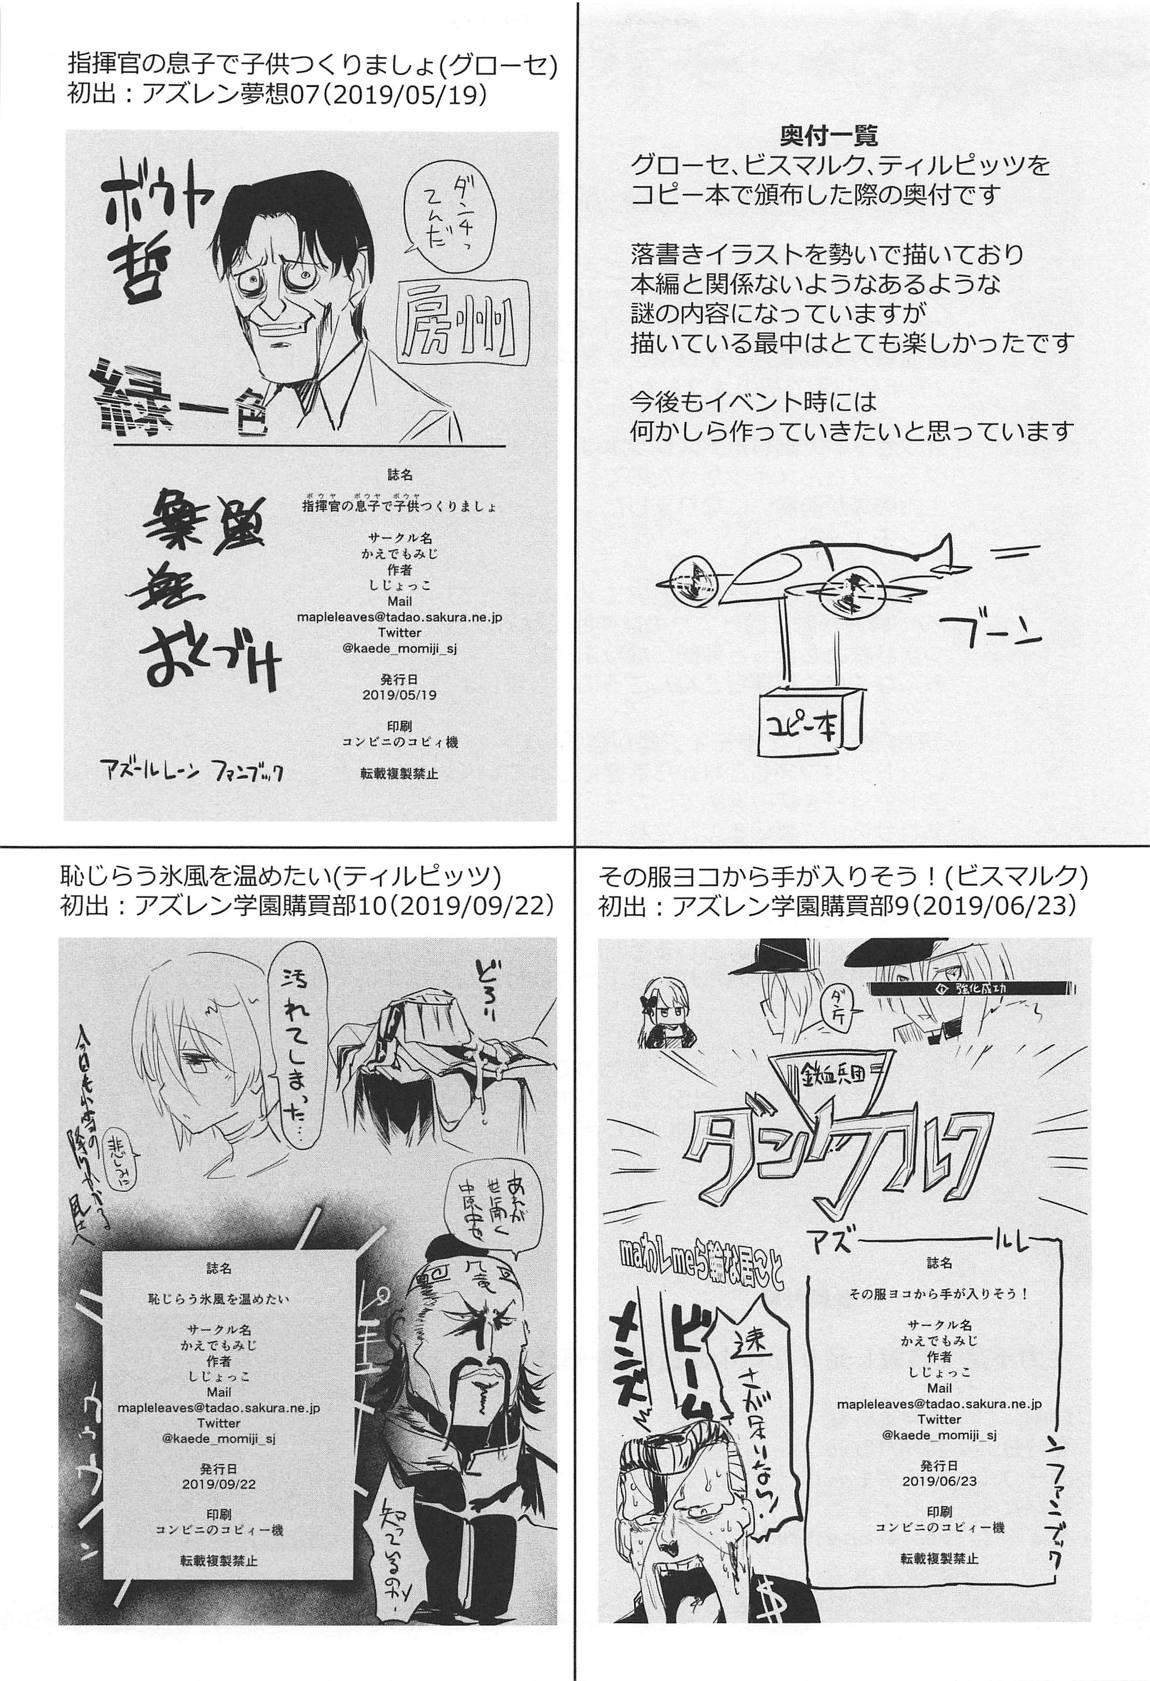 指揮官の息子で子供つくりましょ(グローセ)
初出：アズレン夢想07(2019/05/19)
ボウヤ
哲
ダンチっ
てんだ
房州
緑一色
おくづけ
アズールレーン ファンブック
誌名
ボウヤ ボウヤ ボウヤ
指揮官の息子で子供つくりましょ
サークル名
かえでもみじ
作者
しじょっこ
Mail
mapleleaves@tadao.sakura.ne.jp
Twitter
@kaede_momiji_sj
発行日
2019/05/19
印刷
コンビニのコピィ機
転載複製禁止
奥付一覧
グローセ、ビスマルク、ティルピッツを
コピー本で頒布した際の奥付です
落書きイラストを勢いで描いており
本編と関係ないようなあるような
謎の内容になっていますが
描いている最中はとても楽しかったです
今後もイベント時には
何かしら作っていきたいと思っています
ブーン
コピー本
恥じらう氷風を温めたい(ティルピッツ)
初出：アズレン学園購買部10(2019/09/22)
どろり
汚れてしまった…
悲しみに
今日も小雪の
降りかかる
あれが
世に聞く
中原中也
九竜
知っているのか
誌名
恥じらう氷風を温めたい
サークル名
かえでもみじ
作者
しじょっこ
Mail
mapleleaves@tadao.sakura.ne.jp
Twitter
@kaede_momiji_sj
発行日
2019/09/22
印刷
コンビニのコピィー機
転載複製禁止
その服ヨコから手が入りそう！(ビスマルク)
初出：アズレン学園購買部9(2019/06/23)
強化成功
鉄血兵団
ダンケルク
アズールレーンファンブック
maわしmeら輪な居こと
メンズ
ビーム
速さが足りない！
$
誌名
その服ヨコから手が入りそう！
サークル名
かえでもみじ
作者
しじょっこ
Mail
mapleleaves@tadao.sakura.ne.jp
Twitter
@kaede_momiji_sj
発行日
2019/06/23
印刷
コンビニのコピィー機
転載複製禁止